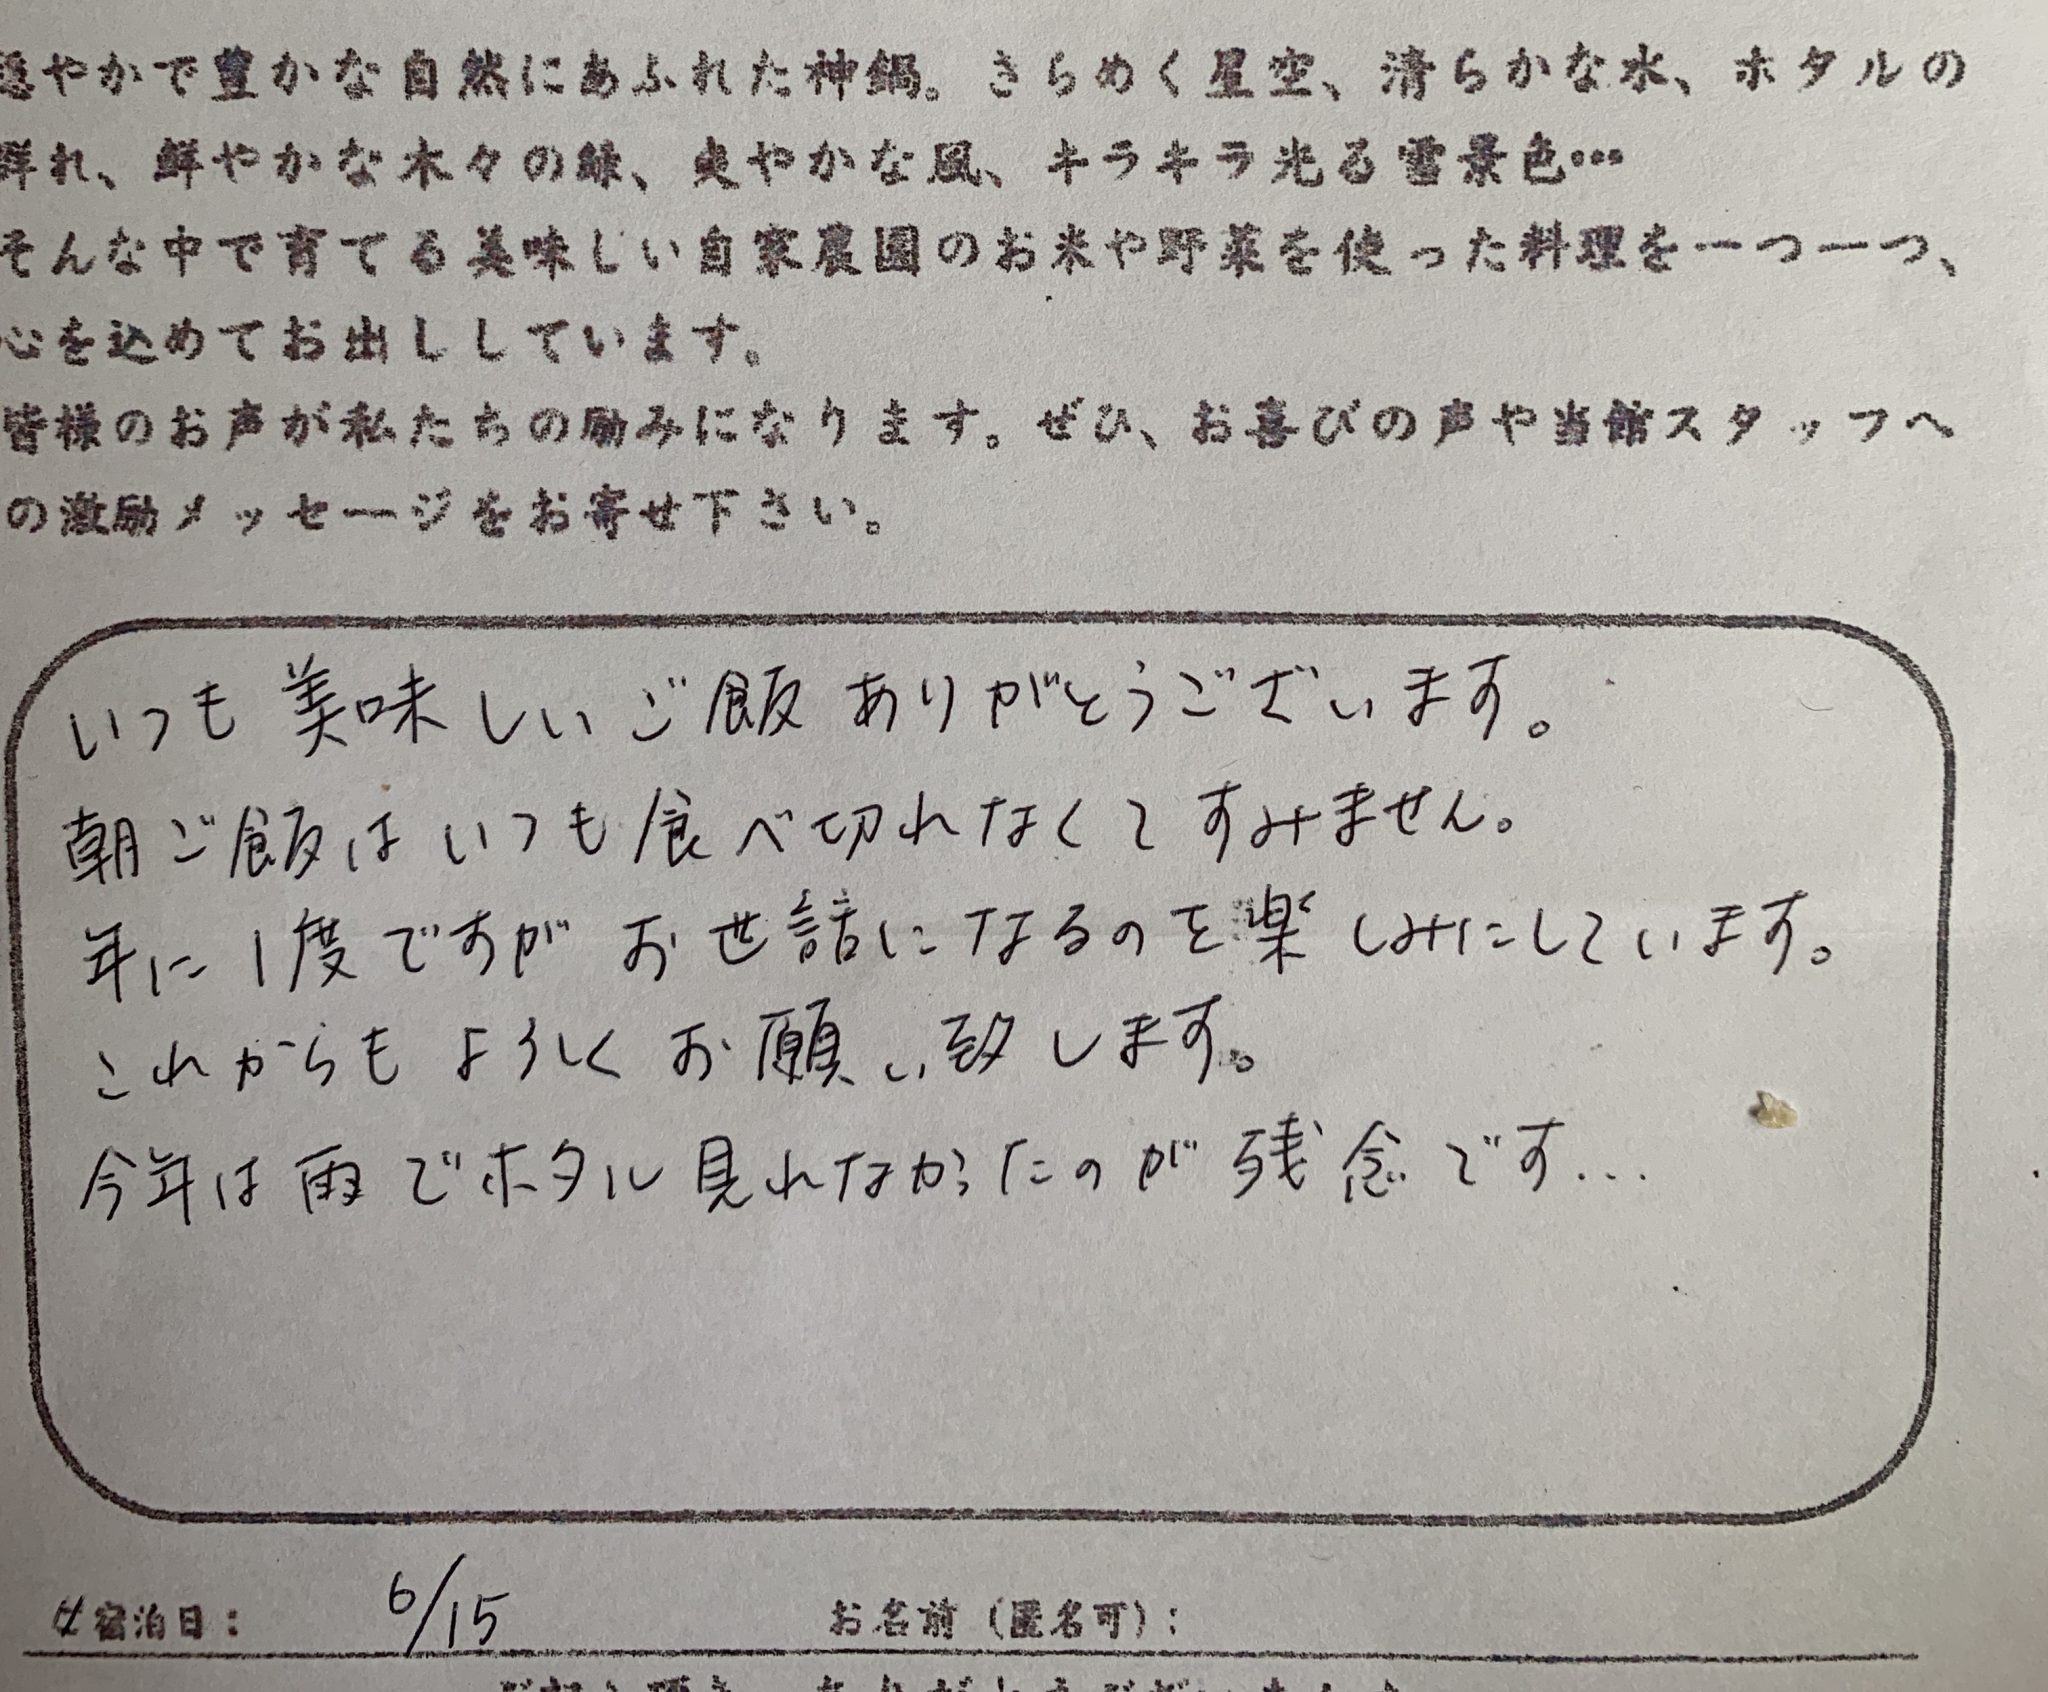 穏やかで豊かな自然にあふれた神鍋。きらめく星空、清らかな水、ホタルの
群れ、鮮やかな木々の緑、爽やかな風、キラキラ光る雪景色…
そんな中で育てる美味しい自家農園のお米や野菜を使った料理を一つ一つ、
心を込めてお出ししています。
皆様のお声が私たちの励みになります。ぜひ、お喜びの声や当館スタッフへ
の激励メッセージをお寄せ下さい。
いつも美味しいご飯ありがとうございます。
朝ご飯はいつも食べ切れなくてすみません。
年に1度ですがお世話になるのを楽しみにしています。
これからもよろしくお願い致します。
今年は雨でホタル見れなかったのが残念です...
ご宿泊日: 6/15 お名前(匿名可):